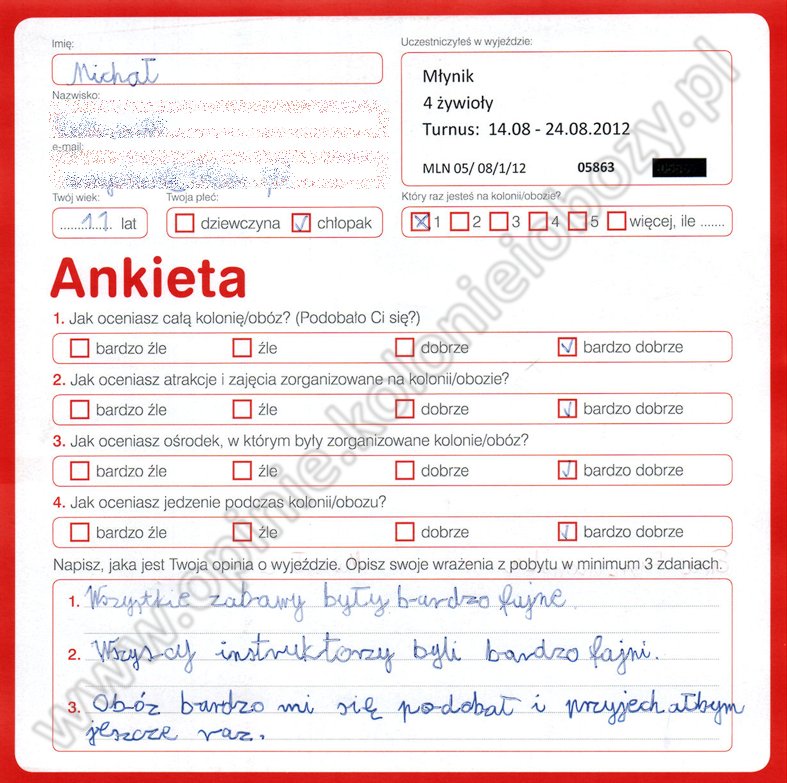 Imię:
Michał
Nazwisko:
e-mail:
Twój wiek:
11 lat
Twoja płeć:
dziewczyna
chłopak
Uczestniczyłeś w wyjeździe:
Młynik
4 żywioły
Turnus: 14.08 - 24.08.2012
MLN 05/ 08/1/12 05863
Który raz jesteś na kolonii/obozie?
1 2 3 4 5 więcej, ile .......
Ankieta
1. Jak oceniasz całą kolonię/obóz? (Podobało Ci się?)
bardzo źle źle dobrze bardzo dobrze
2. Jak oceniasz atrakcje i zajęcia zorganizowane na kolonii/obozie?
bardzo źle źle dobrze bardzo dobrze
3. Jak oceniasz ośrodek, w którym były zorganizowane kolonie/obóz?
bardzo źle źle dobrze bardzo dobrze
4. Jak oceniasz jedzenie podczas kolonii/obozu?
bardzo źle źle dobrze bardzo dobrze
Napisz, jaka jest Twoja opinia o wyjeździe. Opisz swoje wrażenia z pobytu w minimum 3 zdaniach.
1. Wszystkie zabawy były bardzo fajne.
2. Wszyscy instruktorzy byli bardzo fajni.
3. Obóz bardzo mi się podobał i przyjechałbym
jeszcze raz.
www.opinie.kolonieiobozy.pl